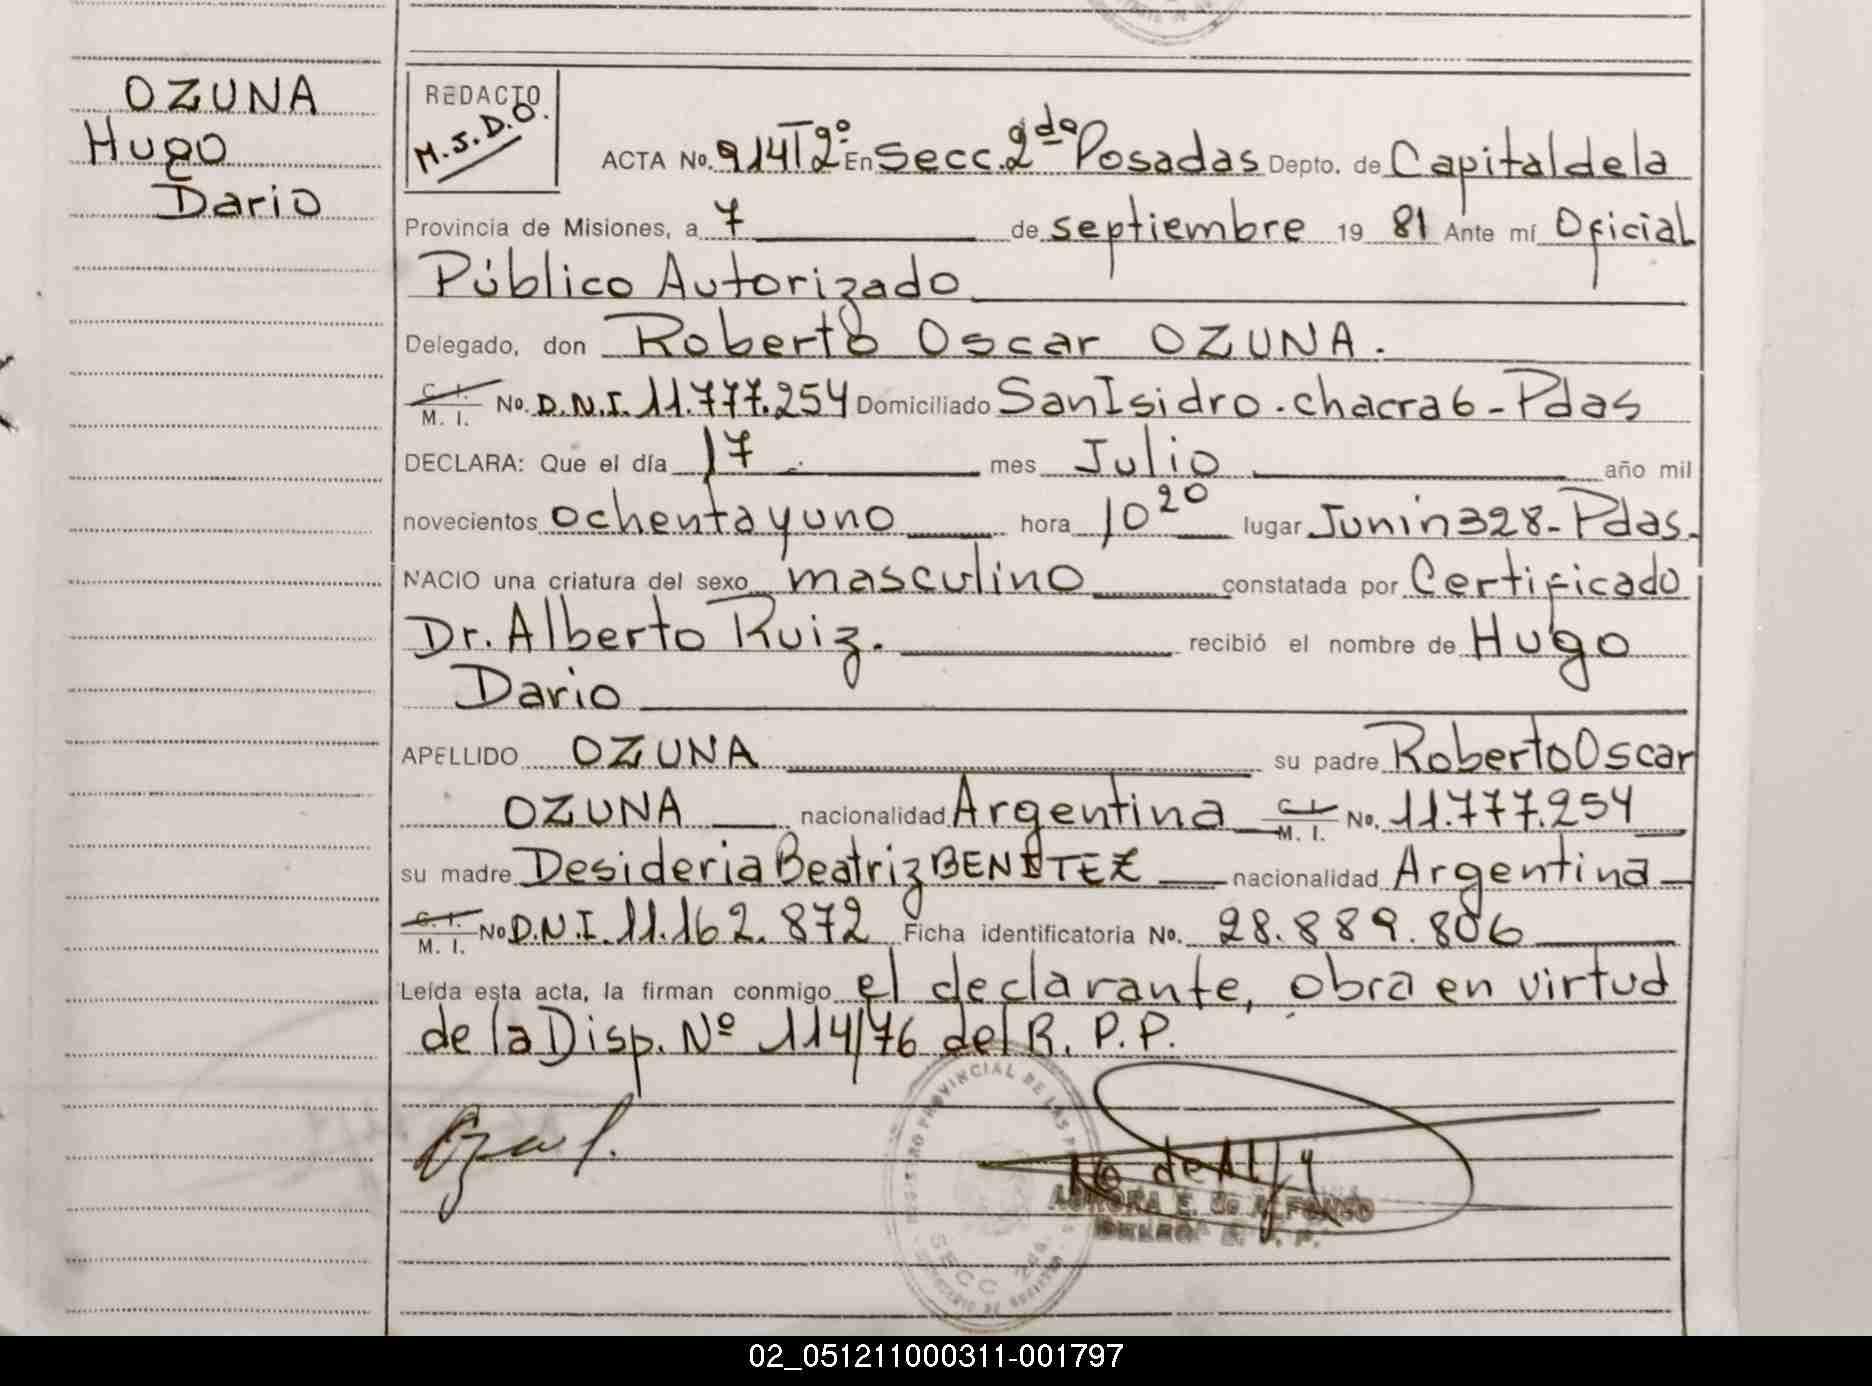 OZUNA
Hugo
Dario
REDACTO
M.S.D.O.
ACTA No. 914 T 2º En Secc. 2da Posadas Depto. de Capital de la
Provincia de Misiones, a 7 de septiembre 19 81 Ante mí Oficial
Público Autorizado
Delegado, don Roberto Oscar OZUNA.
C. I. / M. I. No. D.N.I. 11.777.254 Domiciliado San Isidro. chacra 6 - Pdas
DECLARA: Que el día 17 mes Julio año mil
novecientos ochenta y uno hora 10 20 lugar Junin 328 - Pdas.
NACIO una criatura del sexo masculino constatada por Certificado
Dr. Alberto Ruiz. recibió el nombre de Hugo
Dario
APELLIDO OZUNA su padre Roberto Oscar
OZUNA nacionalidad Argentina C. I. / M. I. No. 11.777.254
su madre Desideria Beatriz BENITEZ nacionalidad Argentina
C. I. / M. I. No D.N.I. 11.162.872 Ficha identificatoria No. 28.889.806
Leída esta acta, la firman conmigo el declarante, obra en virtud
de la Disp. Nº 114/76 del R. P. P.
REGISTRO PROVINCIAL DE LAS
SECC 2da
E. de ALFONSO
02_051211000311-001797